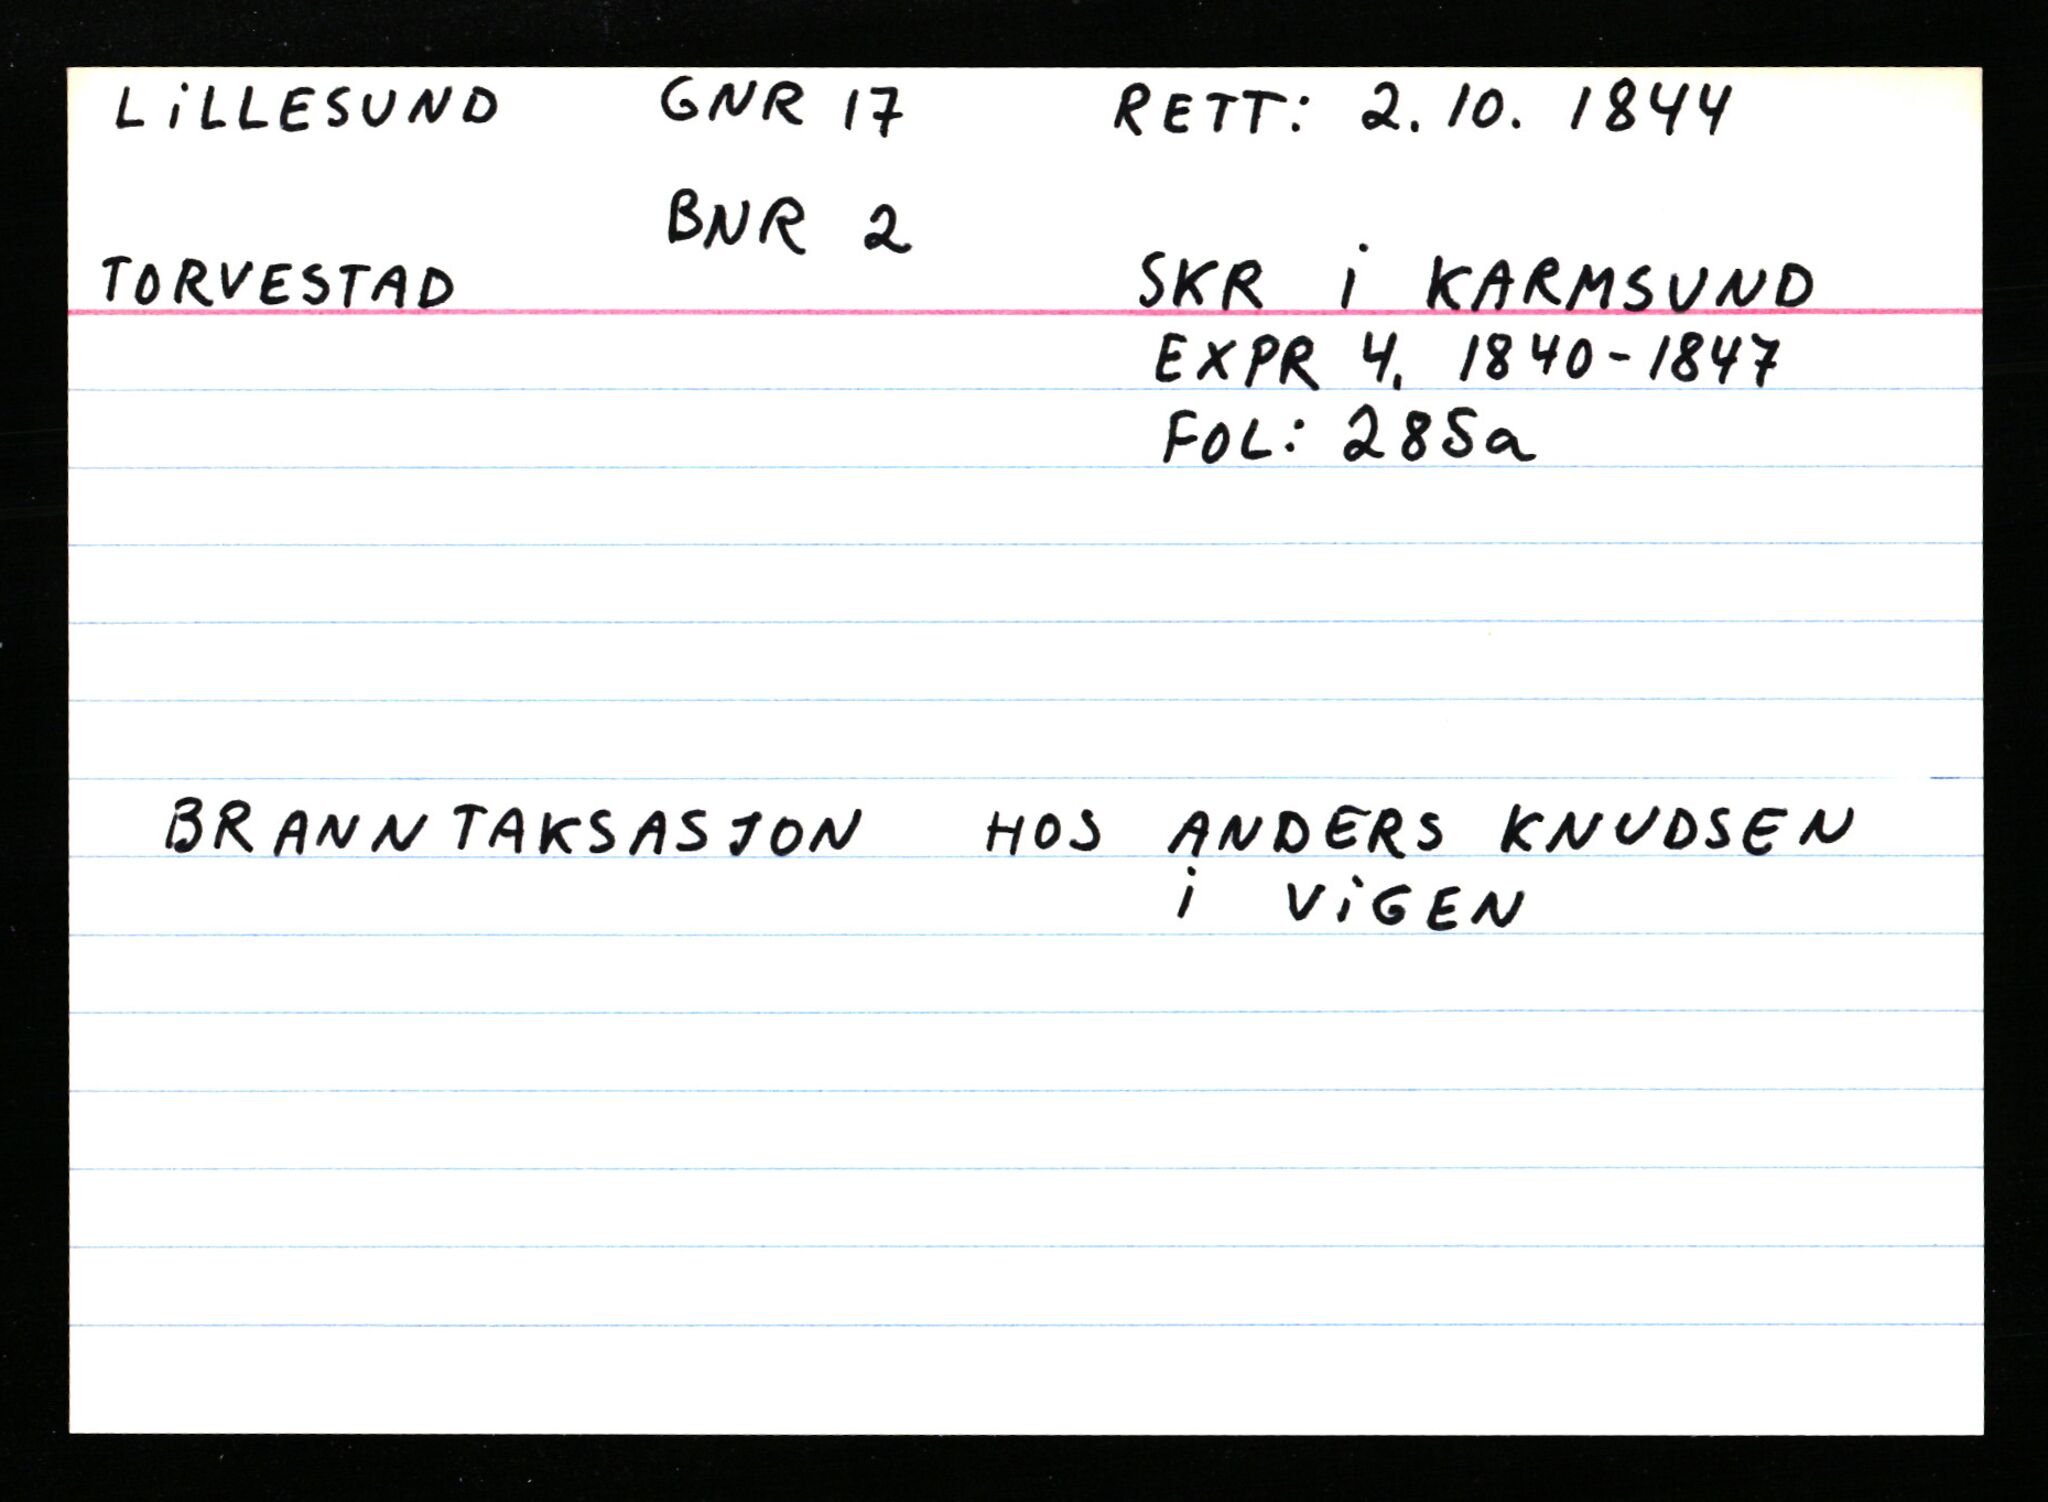 LiLLESUND GNR 17 RETT: 2.10. 1844
BNR 2
TORVESTAD SKR i KARMSUND
EXPR 4. 1840-1847
FOL: 285a
BRANNTAKSASJON HOS ANDERS KNUDSEN
i ViGEN